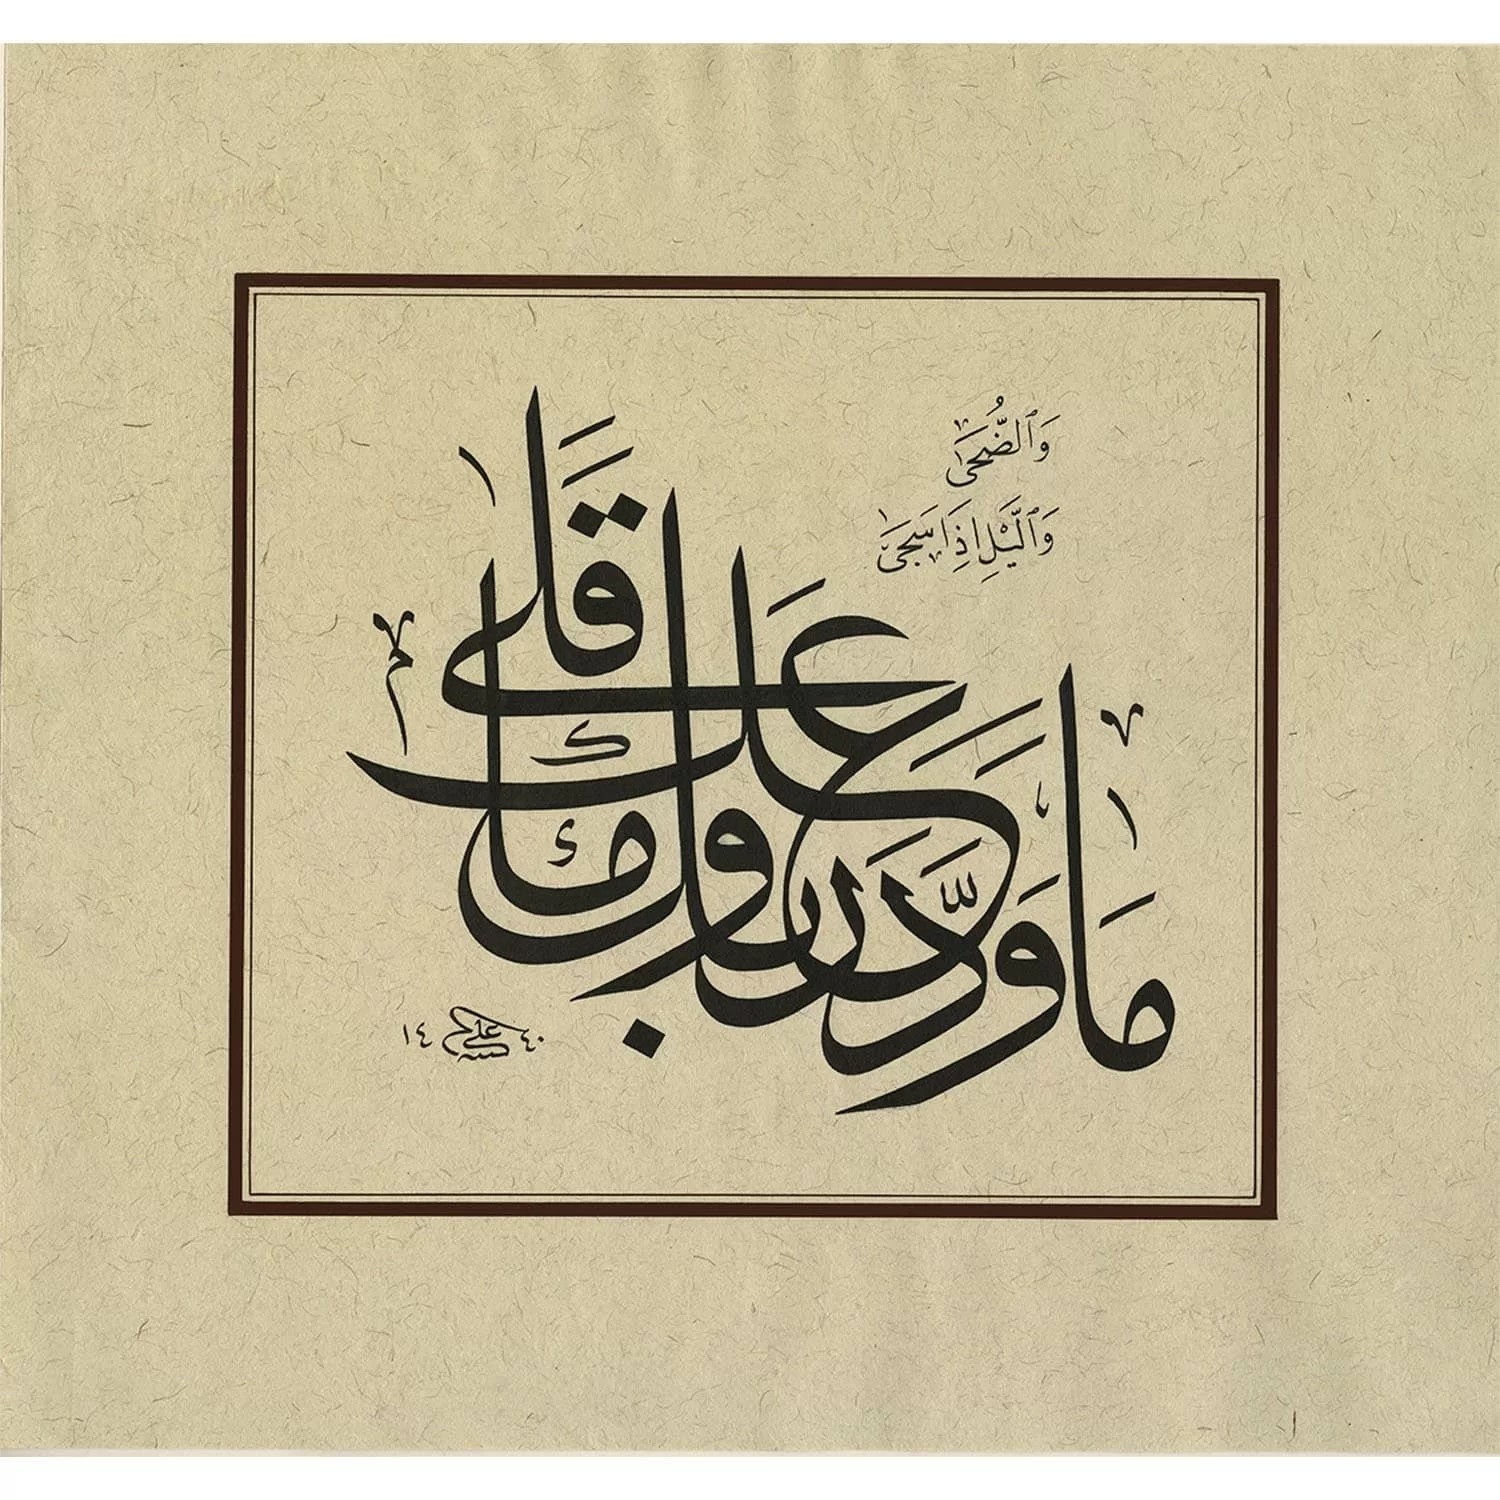 وَٱلضُّحَىٰ
وَٱلَّيْلِ إِذَا سَجَىٰ
مَا وَدَّعَكَ رَبُّكَ وَمَا قَلَىٰ
علي ١٤٤٠